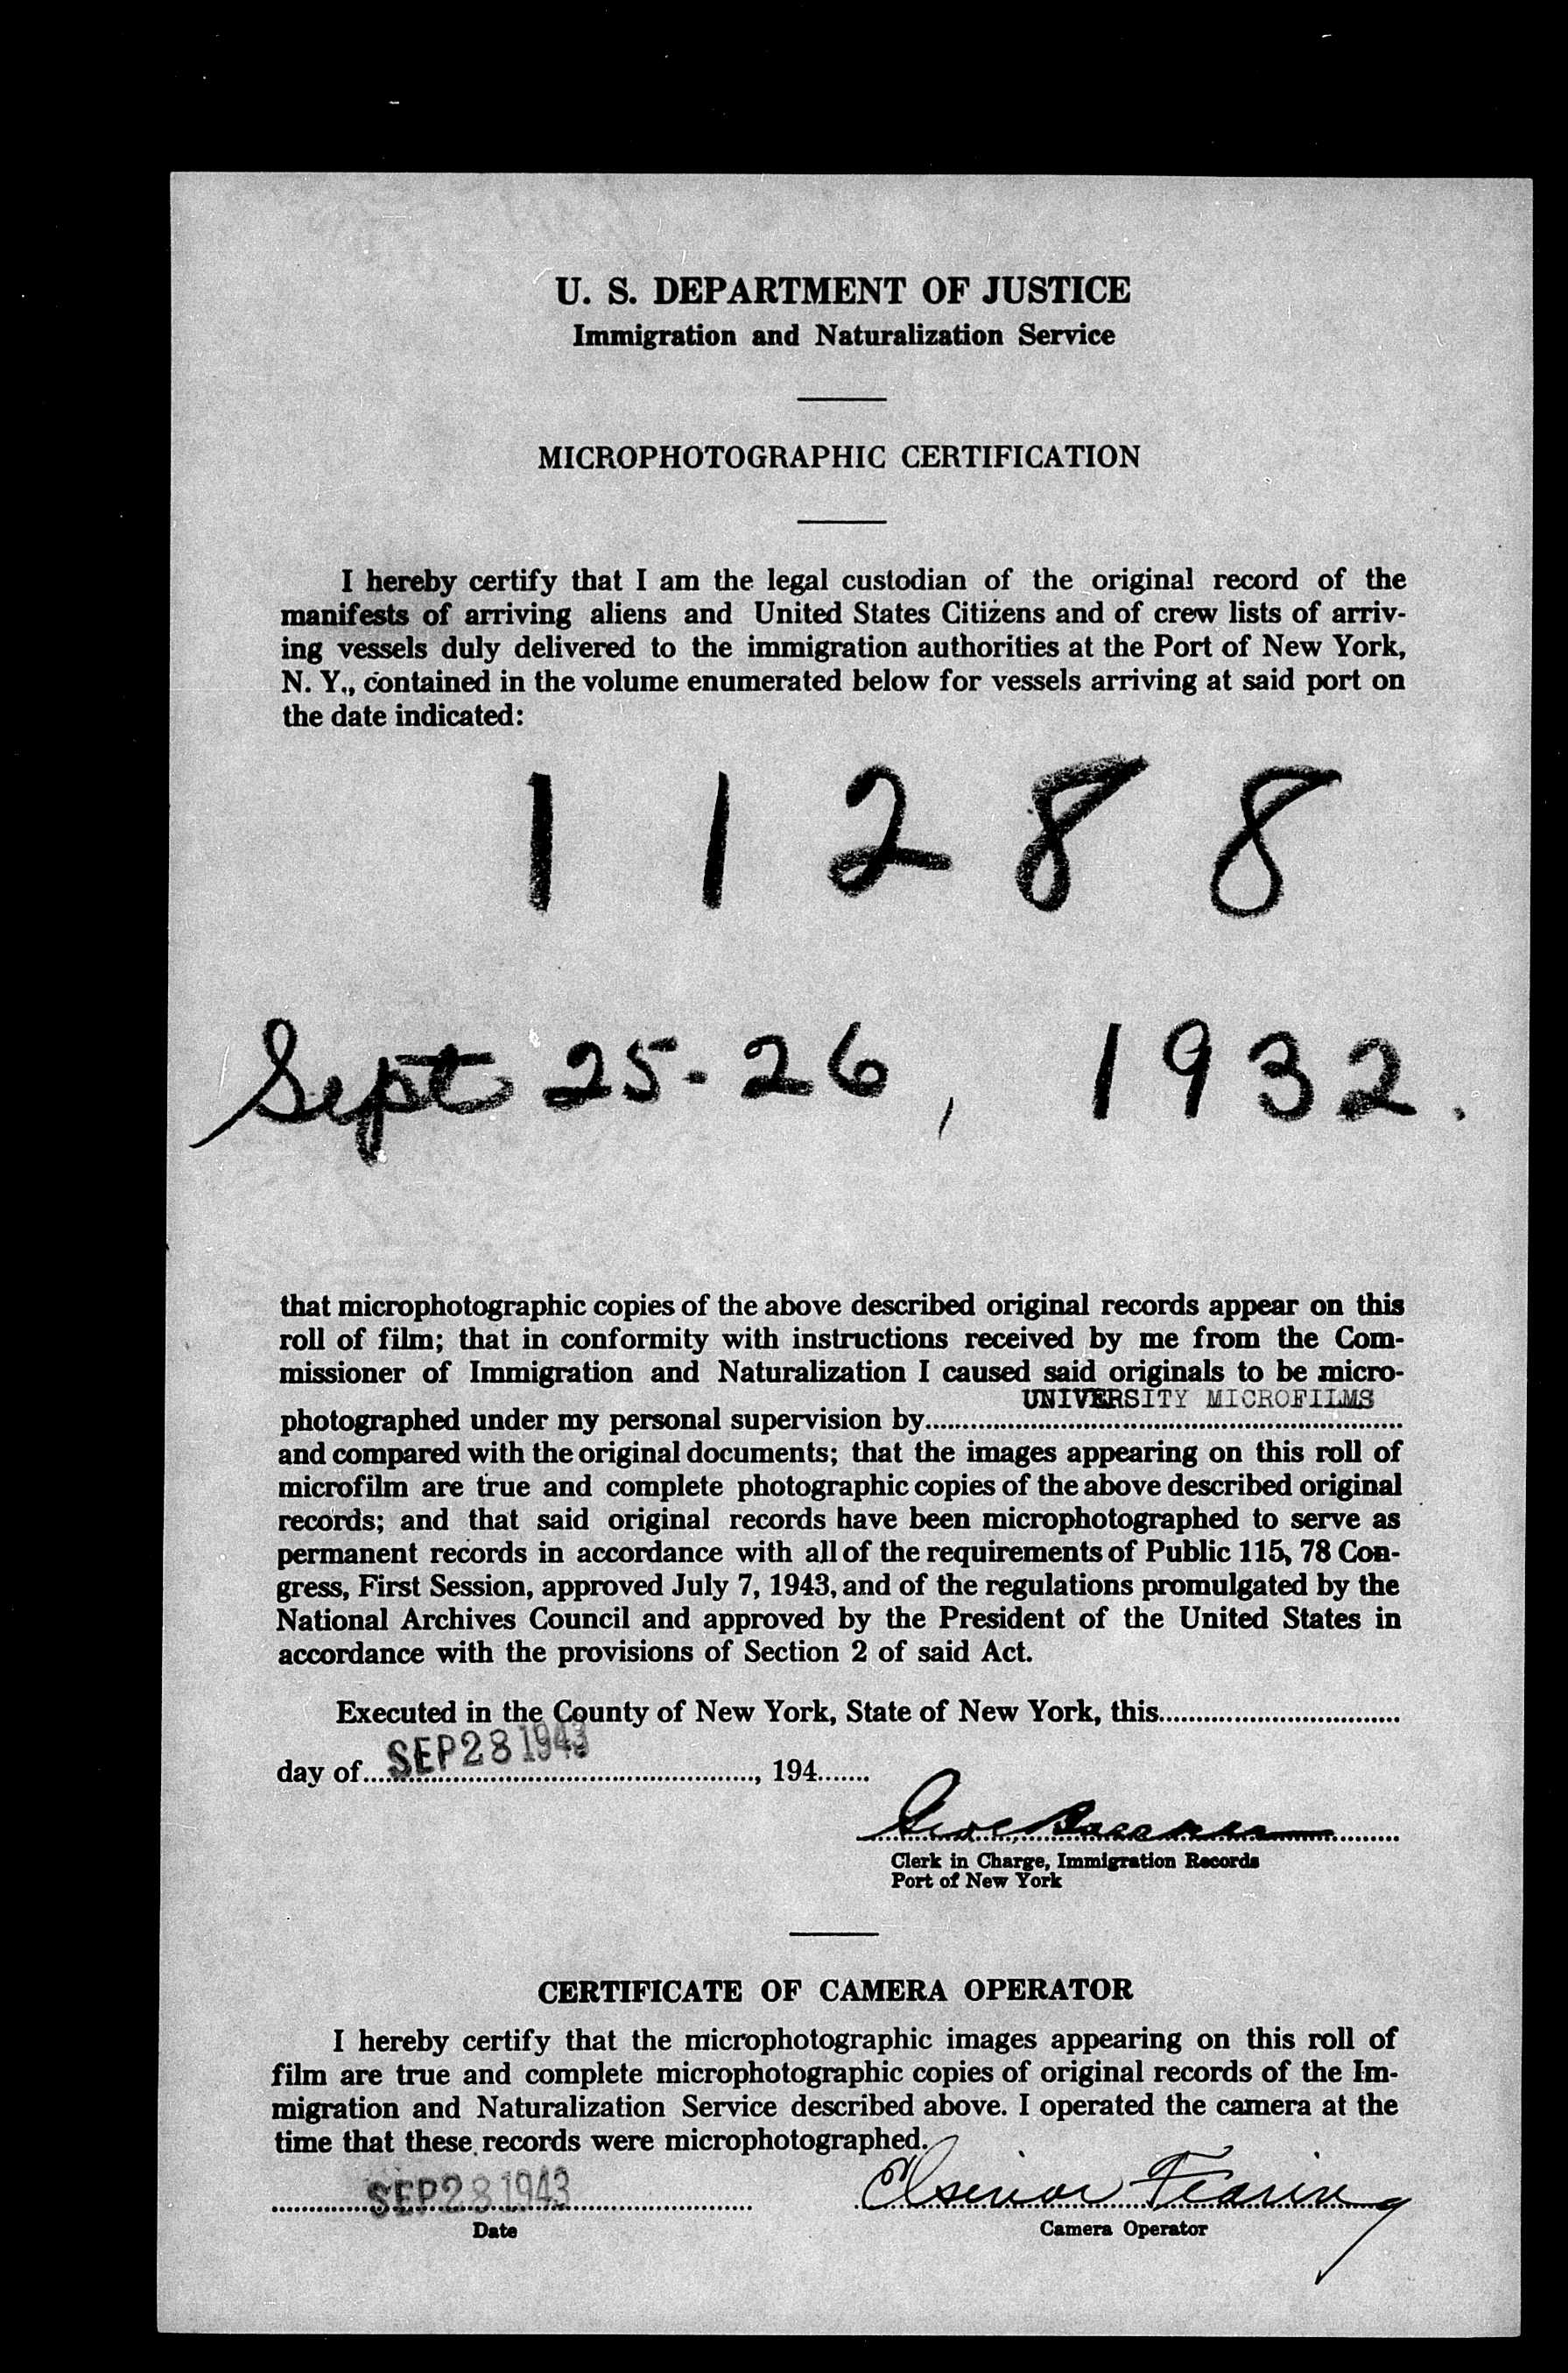 U. S. DEPARTMENT OF JUSTICE
Immigration and Naturalization Service
MICROPHOTOGRAPHIC CERTIFICATION
I hereby certify that I am the legal custodian of the original record of the
manifests of arriving aliens and United States Citizens and of crew lists of arriv-
ing vessels duly delivered to the immigration authorities at the Port of New York,
N. Y., contained in the volume enumerated below for vessels arriving at said port on
the date indicated:
1 1 2 8 8
Sept 25-26, 1932.
that microphotographic copies of the above described original records appear on this
roll of film; that in conformity with instructions received by me from the Com-
missioner of Immigration and Naturalization I caused said originals to be micro-
UNIVERSITY MICROFILMS
photographed under my personal supervision by
and compared with the original documents; that the images appearing on this roll of
microfilm are true and complete photographic copies of the above described original
records; and that said original records have been microphotographed to serve as
permanent records in accordance with all of the requirements of Public 115, 78 Con-
gress, First Session, approved July 7, 1943, and of the regulations promulgated by the
National Archives Council and approved by the President of the United States in
accordance with the provisions of Section 2 of said Act.
Executed in the County of New York, State of New York, this
SEP 28 1943
day of , 194
Clerk in Charge, Immigration Records
Port of New York
CERTIFICATE OF CAMERA OPERATOR
I hereby certify that the microphotographic images appearing on this roll of
film are true and complete microphotographic copies of original records of the Im-
migration and Naturalization Service described above. I operated the camera at the
time that these records were microphotographed.
SEP 28 1943 Elsinor Fearing
Date Camera Operator